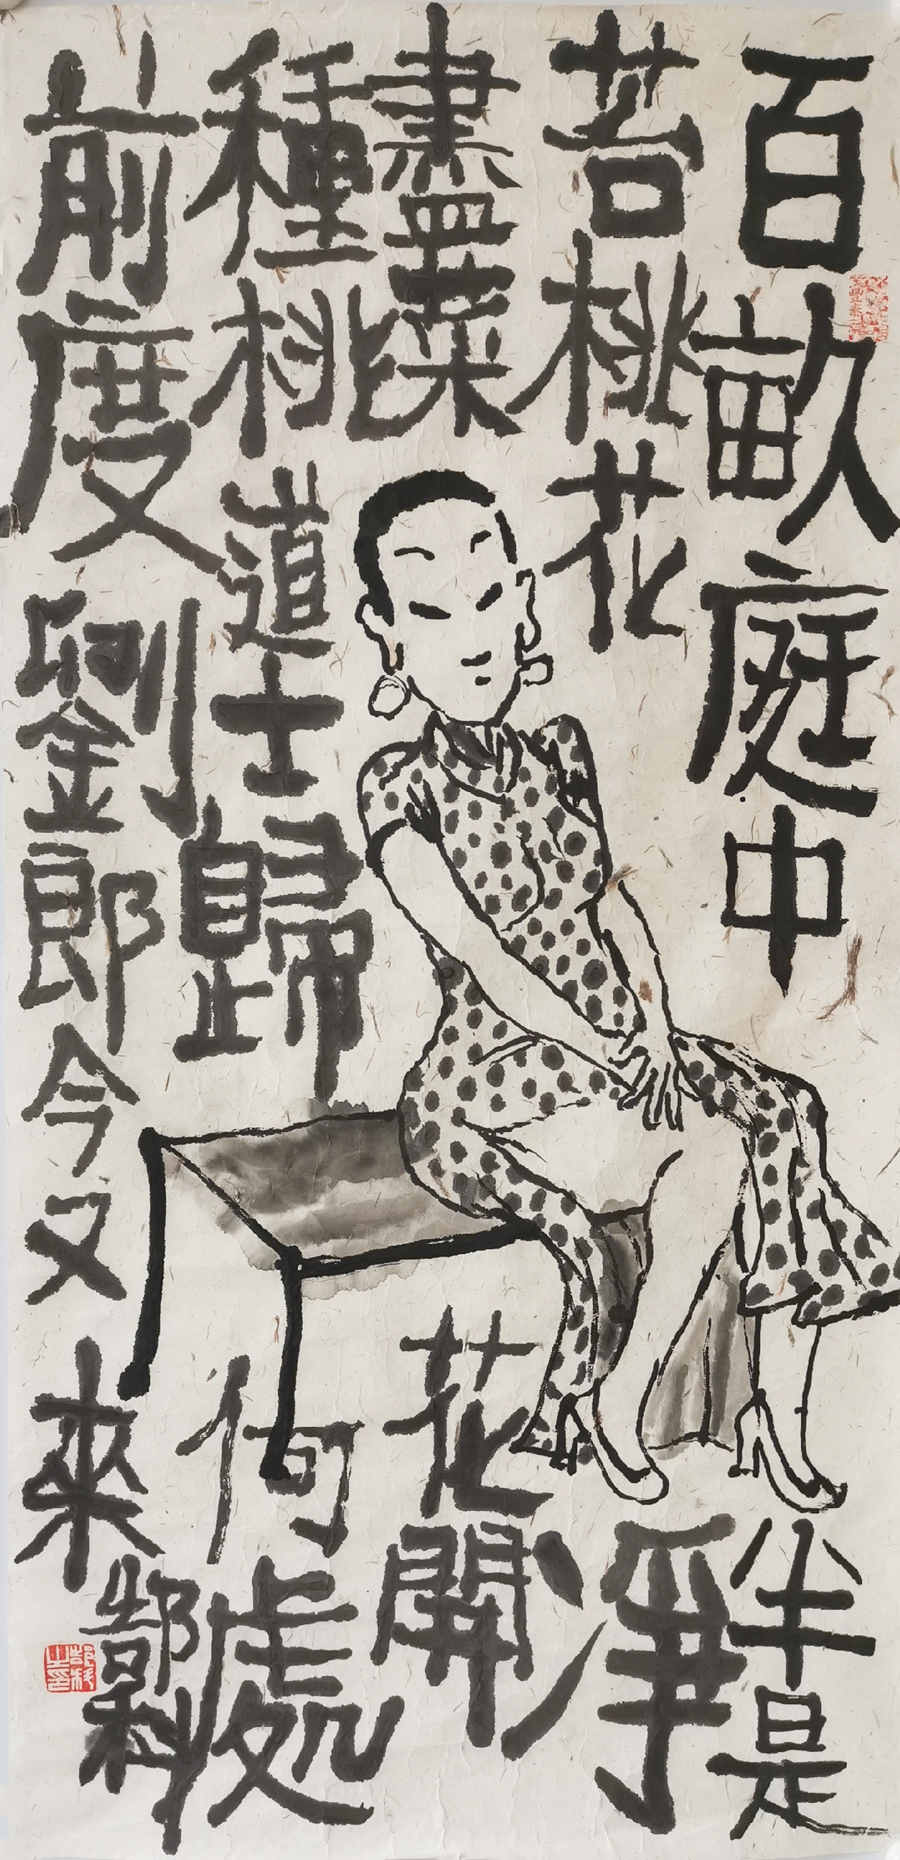 百畝庭中半是
苔桃花淨
盡菜花開
種桃道士歸何處
前度劉郎今又來
郜科